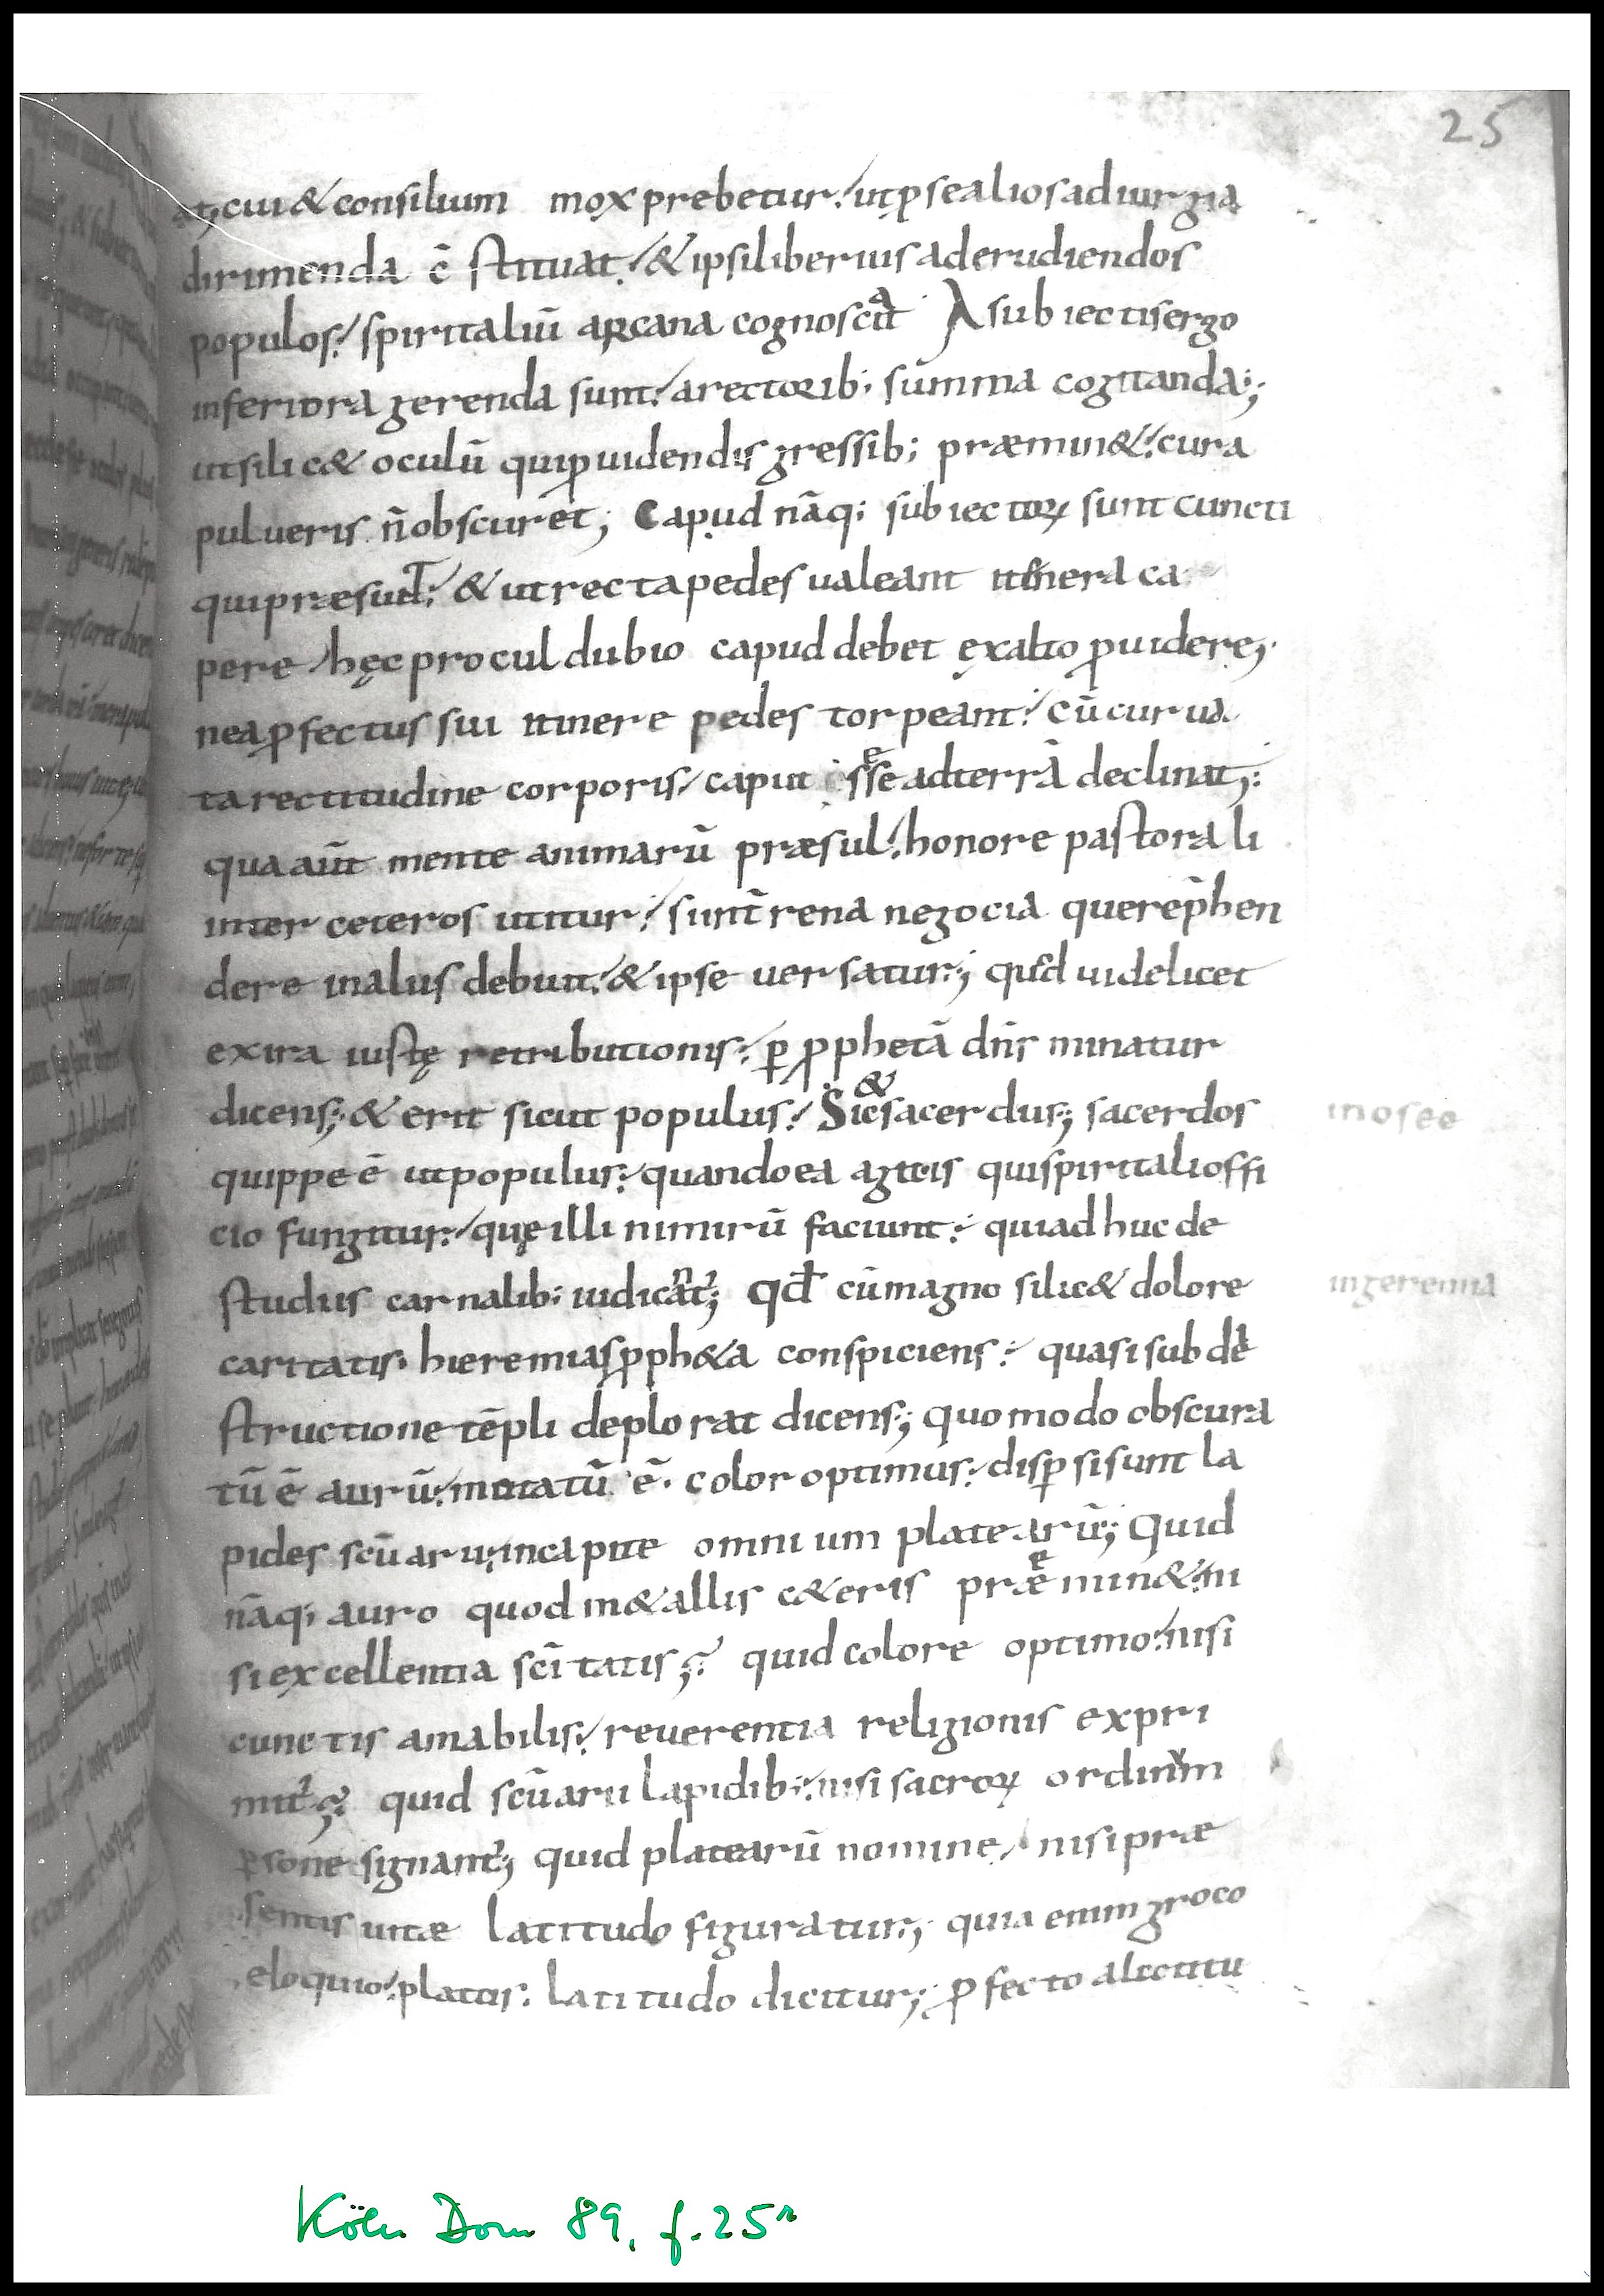 25
at; cui & consilium mox prebetur; ut ꝓ se alios ad iurgia
dirimenda c̄ stituat; & ipsi liberius ad erudiendos
populos; spiritaliū arcana cognoscat A subiectis ergo
inferiora gerenda sunt; a rectorib; summa cogitanda;
ut silic& oculū qui ꝓuidendis gressib; præmin&; cura
pulueris n̄ obscuret; Capud nāq; subiectoꝝ sunt cuncti
qui præsunt; & ut recta pedes ualeant itinera ca
pere hęc procul dubio capud debet ęx alto ꝓuidere;
ne a ꝓfectus sui itinere pedes torpeant; cū curua
ta rectitudine corporis, caput esse ad terrā declinat;
qua aūt mente animarū præsul; honore pastorali
inter ceteros utitur; si in t̄rena negocia que rep̄hen
dere in aliis debuit; & ipse uersatur; qđ uidelicet
ex ira iustę retributionis; ꝑ ꝓphetā dn̄s minatur
dicens; & erit sicut populus; Sic & sacerdus; sacerdos
inosee
quippe ē ut populus; quando ea agit is qui spiritali offi
cio fungitur; quę illi nimirū faciunt; qui adhuc de
studiis carnalib; iudicant̾; Qđ cū magno silic& dolore
ingeremia
caritatis. hieremias ꝓph&a conspiciens; quasi sub de
structione tēpli deplorat dicens; quomodo obscura
tū ē aurū; mutatū ē. color optimus; disꝑsi sunt la
pides scūarii; in capite omnium platearū; Quid
nāq; auro quod m&allis c&eris præemin&; ni
si excellentia scītatis; quid colore optimo; nisi
cunctis amabilis; reuerentia religionis expri
mit̾; quid scūarii lapidib; nisi sacroꝝ ordinum
ꝑsone signant̾; quid platearū nomine, nisi præ
sentis uitæ latitudo figuratur; quia enim groco
eloquio; platus. latitudo dicitur; ꝓfecto a latitu
Köln Dom 89, f. 25r